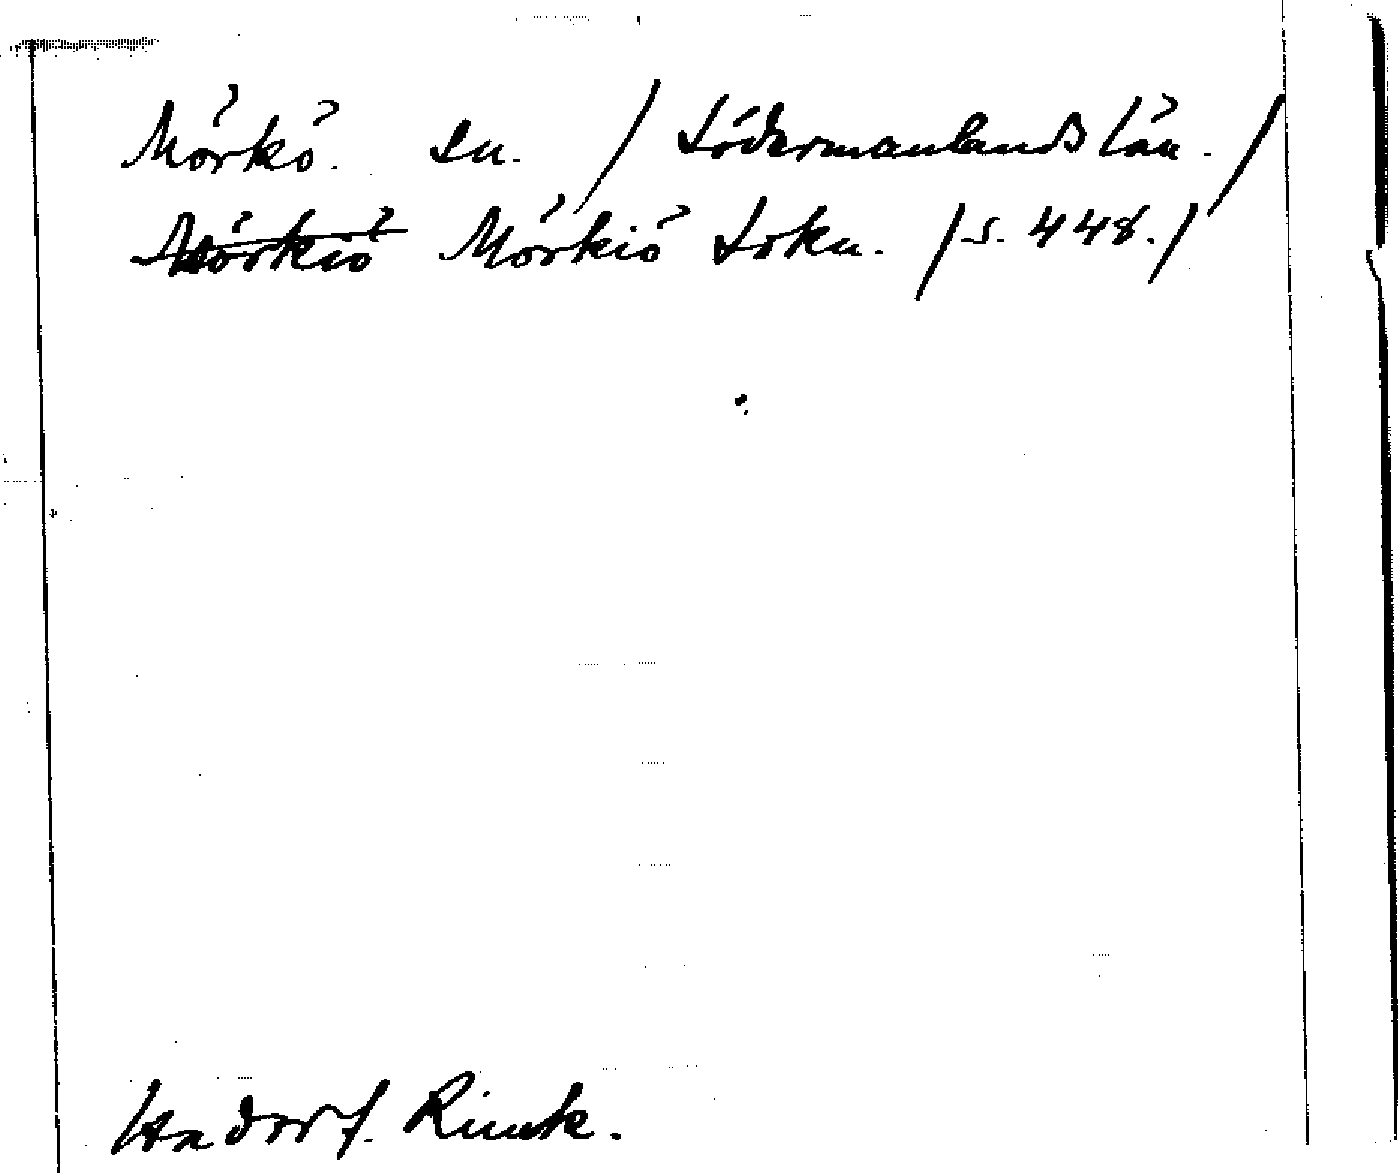 Mörkö. sn. / Södermanlands län. /
Mörkiö Mörkiö Sokn. / s. 448. /
Hadorf. Rimk.